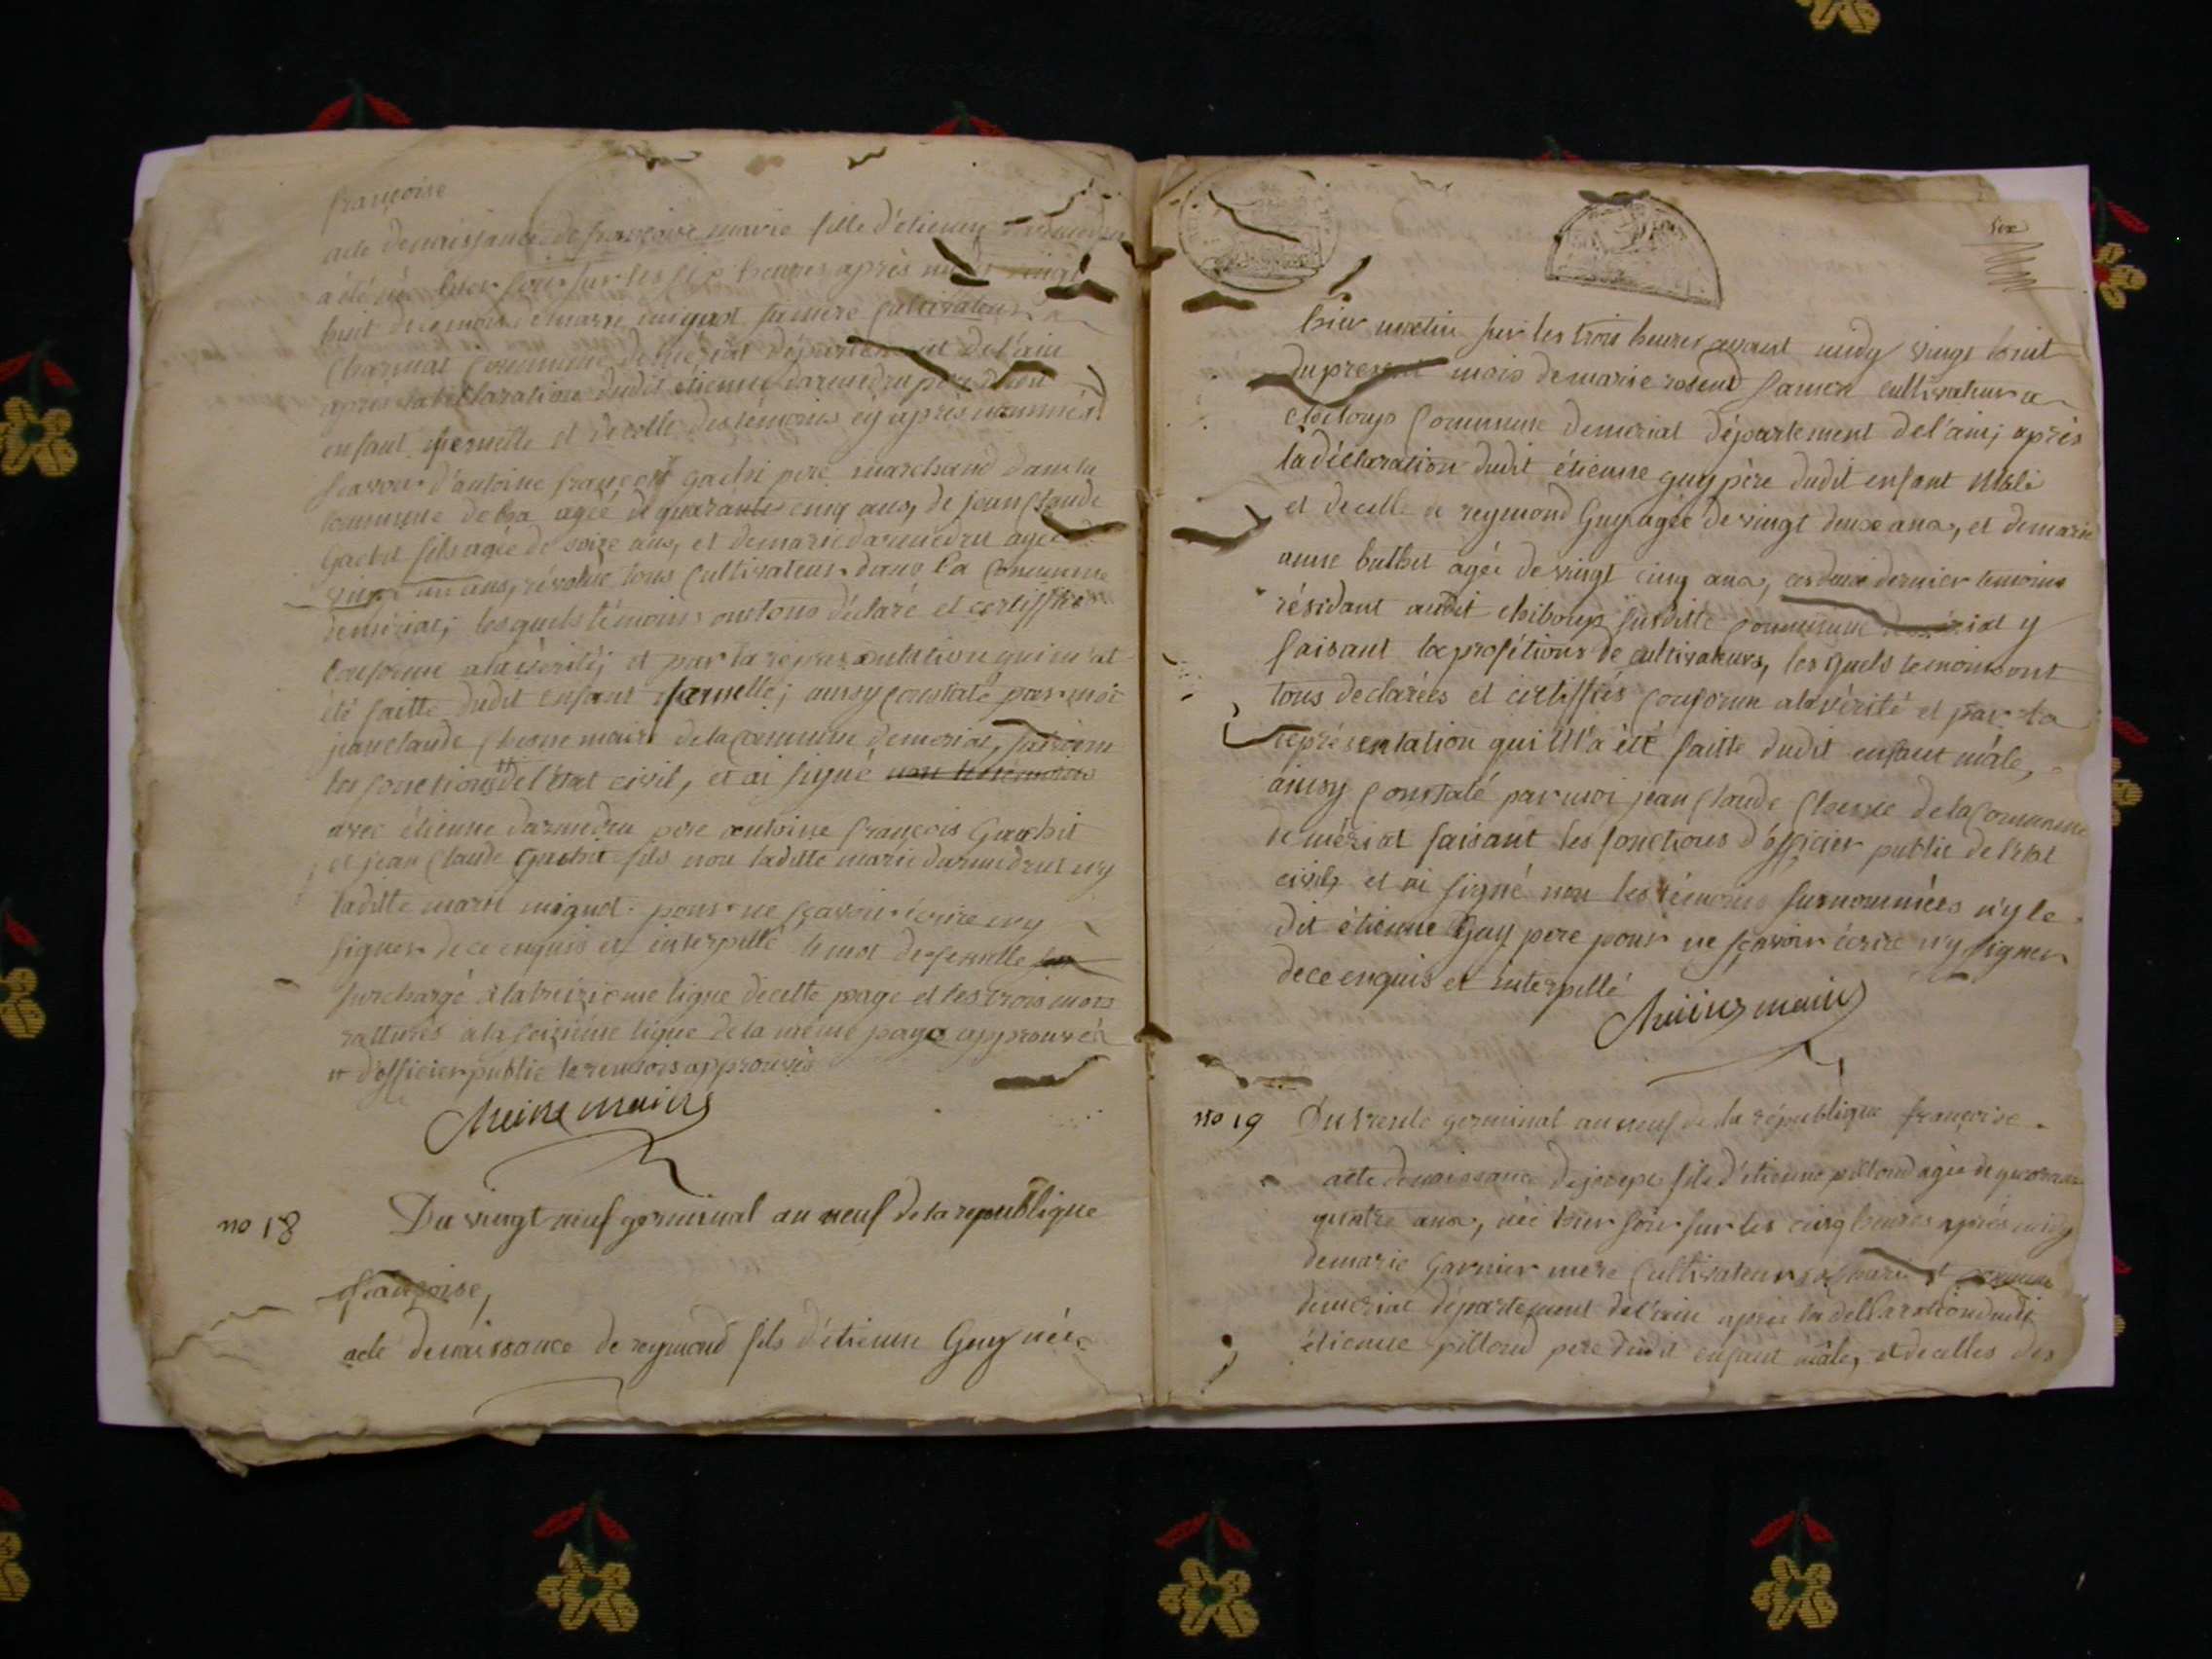 françoise
acte de naissance de françoise marie fille d'étienne
a été née hier soir sur les six heures après midy vingt
huit de ce mois de marie migniot sa mere cultivateur a
Charmat Commune de meriat département de l'ain
apres la déclaration dudit étienne darmedru père dudit
enfant femelle et de celle des témoins cy après nommés
scavoir d'antoine françois gachi pere marchand dans la
commune de agée de quarante cinq ans, de jean Claude
Gachit fils agée de seize ans, et de marie darmedru agée
vingt un ans, révolue tous Cultivateurs dans la Commune
de mériat; lesquels témoins ont tous déclaré et certiffié
conforme a la vérité; et par la representation qui m'at
été faitte dudit enfant femelle; aussy constaté par moi
jean claude Chesne maire de la Commune de meriat, faisant
les fonctions de l'état civil, et ai signé non les témoins
avec étienne darmedru pere antoine françois Gachit
et jean Claude Gachit fils non laditte marie darmedrut n'y
laditte marie mignot pour ne sçavoir écrire n'y
signer de ce enquis et interpellé le mot de femelle
surchargé a la treizieme ligne de cette page et les trois mots
rattures a la seizième ligne de la même page approuvés
d'officier public le renvois approuvés
Cheine maire
no 18 Du vingt neuf germinal an neuf de la republique
françoise,
acte de naissance de reymond fils d'étienne Guy née
six
hier matin sur les trois heures avant midy vingt huit
du present mois de marie rosend sa mere cultivateur a
chiloup Commune de meriat département de l'ain; après
la déclaration dudit étienne guy père dudit enfant Mâle
et de celle de reymond Guy agée de vingt deux ans, et de marie
anne buthet agée de vingt cinq ans, ces deux dernier temoins
résidant audit chiloup susditte commune de mériat y
faisant la profétions de cultivateurs, les quels temoins ont
tous declarées et certiffiés conforme a la vérité et par la
représentation qui M'a été faitte dudit enfant mâle,
ainsy constaté par moi jean Claude Chesne de la Commune
de mériat faisant les fonctions d'officier public de l'etat
civil, et ai signé non les témoins surnommées n'y le
dit étienne Guy pere pour ne sçavoir écrire n'y signer
de ce enquis et interpellé
Cheine maire
no 19 Du trente germinal an neuf de la république françoise
acte de naissance de joseph fils d'étienne pilloud agée de quarante
quatre ans, née hier soir sur les cinq heures après midy
de marie Garnier mere Cultivateur commune
de meriat département de l'ain après la declaration dudit
étienne pilloud pere dudit enfant mâle, et de celles des